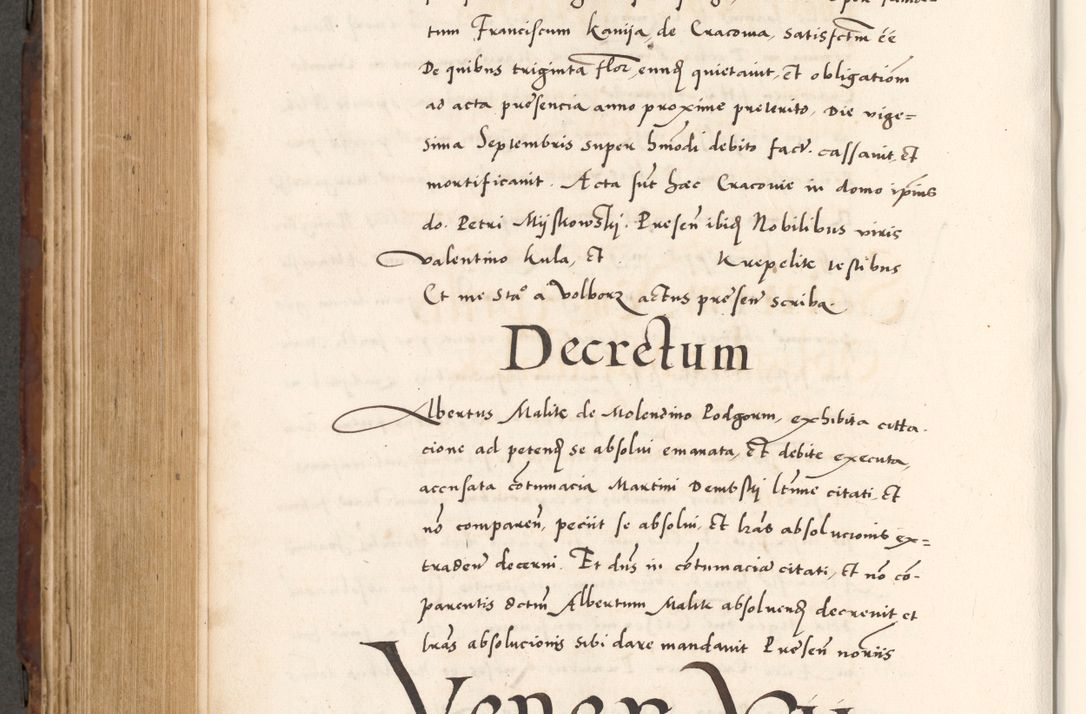 tum Franciscum Kanija, de Cracowia, satisfctm ee
De quibus triginta flor, eundq quietavit, et obligationm
ad acta presencia anno proxime preterito, die vige=
sima Septembris super hmodi debito fact. cassavit, et
mortificavit. Acta sut haec Cracovie in domo ipsius
do. Petri Myskowskij. Presen ibidq Nobilibus viris
Valentino Kula, et Krepelik testibus
Et me Sta° a Wolborz actus presen scriba.
Decretum
Albertus Malik de Molendino Podgorm, exhibita citta.
cione ad petendq se absolvi emanata, et debite executa,
accusata cotumacia Martini Dembskij ltime citati, et
no comparen, peciit se absolvi, et lras absolucionis ex=
traden decerni. Et dns in cotumacia citati, et no co-
parentis dctm Albertum Malik absolvendq decrevit et
lras absolucionis sibi dare mandavit Presen noriis
Vener